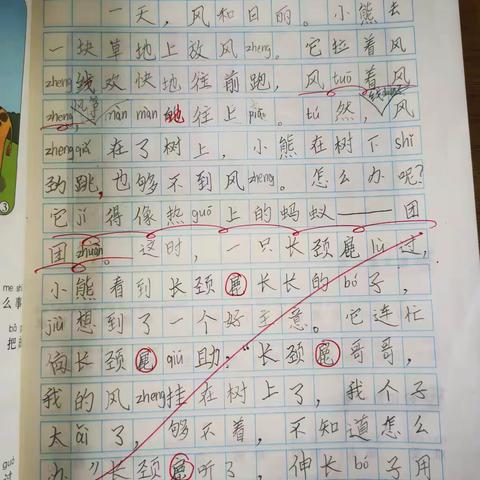 一天，风和日丽。小熊去
一块草地上放风zheng。它拉着风
zheng线欢快地往前跑，风tuō着风
zheng，màn màn地往上piāo。tú然，风
zhengguà在了树上，小熊在树下shǐ
劲跳，也够不到风zheng。怎么办呢？
它jí得像热guō上的蚂蚁——团
团zhuàn。这时，一只长颈鹿lù过，
小熊看到长颈鹿长长的bó子，
jiù想到了一个好主意。它连忙
向长颈鹿qiú助：“长颈鹿哥哥，
我的风zheng挂在树上了，我个子
太ǎi了，够不着，不知道怎么
办”长颈鹿听了，伸长bó子用
me shì
么事
bǎ
把
guò
过
3